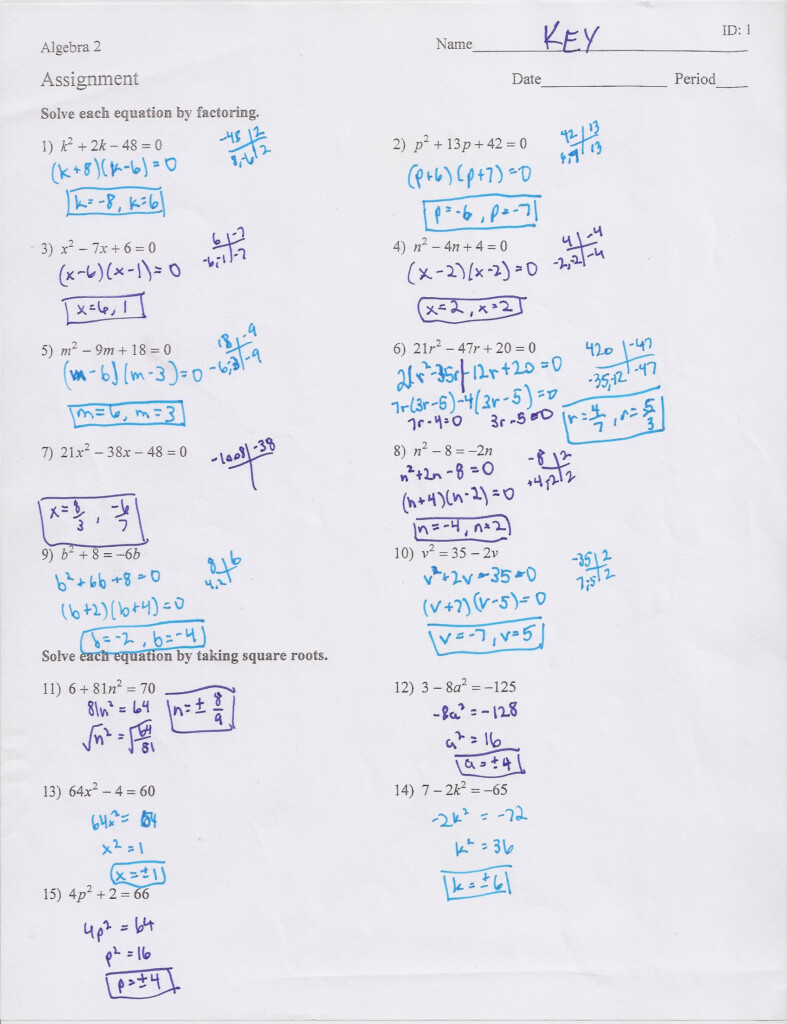 ID: 1
Algebra 2
Name KEY
Assignment
Date Period
Solve each equation by factoring.
1) k² + 2k − 48 = 0
-48 | 2
8,-6 | 2
(k+8)(k-6)=0
k=-8, k=6
2) p² + 13p + 42 = 0
42 | 13
6,7 | 13
(p+6)(p+7)=0
p=-6, p=-7
3) x² − 7x + 6 = 0
6 | -7
-6,-1 | -7
(x-6)(x-1)=0
x=6, 1
4) n² − 4n + 4 = 0
4 | -4
-2,-2 | -4
(x-2)(x-2)=0
x=2, x=2
5) m² − 9m + 18 = 0
18 | -9
-6,-3 | -9
(m-6)(m-3)=0
m=6, m=3
6) 21r² − 47r + 20 = 0
420 | -47
-35,-12 | -47
21r²-35r|-12r+20=0
7r(3r-5)-4(3r-5)=0
7r-4=0 3r-5=0
r=4/7, r=5/3
7) 21x² − 38x − 48 = 0
-1008 | -38
x=8/3, -6/7
8) n² − 8 = −2n
-8 | 2
+4,-2 | 2
n²+2n-8=0
(n+4)(n-2)=0
n=-4, n=2
9) b² + 8 = −6b
8 | 6
4,2
b²+6b+8=0
(b+2)(b+4)=0
b=-2, b=-4
10) v² = 35 − 2v
-35 | 2
7,-5 | 2
v²+2v-35=0
(v+7)(v-5)=0
v=-7, v=5
Solve each equation by taking square roots.
11) 6 + 81n² = 70
81n² = 64
√n² = √64/81
n=± 8/9
12) 3 − 8a² = −125
-8a² = -128
a² = 16
a=±4
13) 64x² − 4 = 60
64x² = 64
x² = 1
x=±1
14) 7 − 2k² = −65
-2k² = -72
k² = 36
k=±6
15) 4p² + 2 = 66
4p² = 64
p² = 16
p=±4